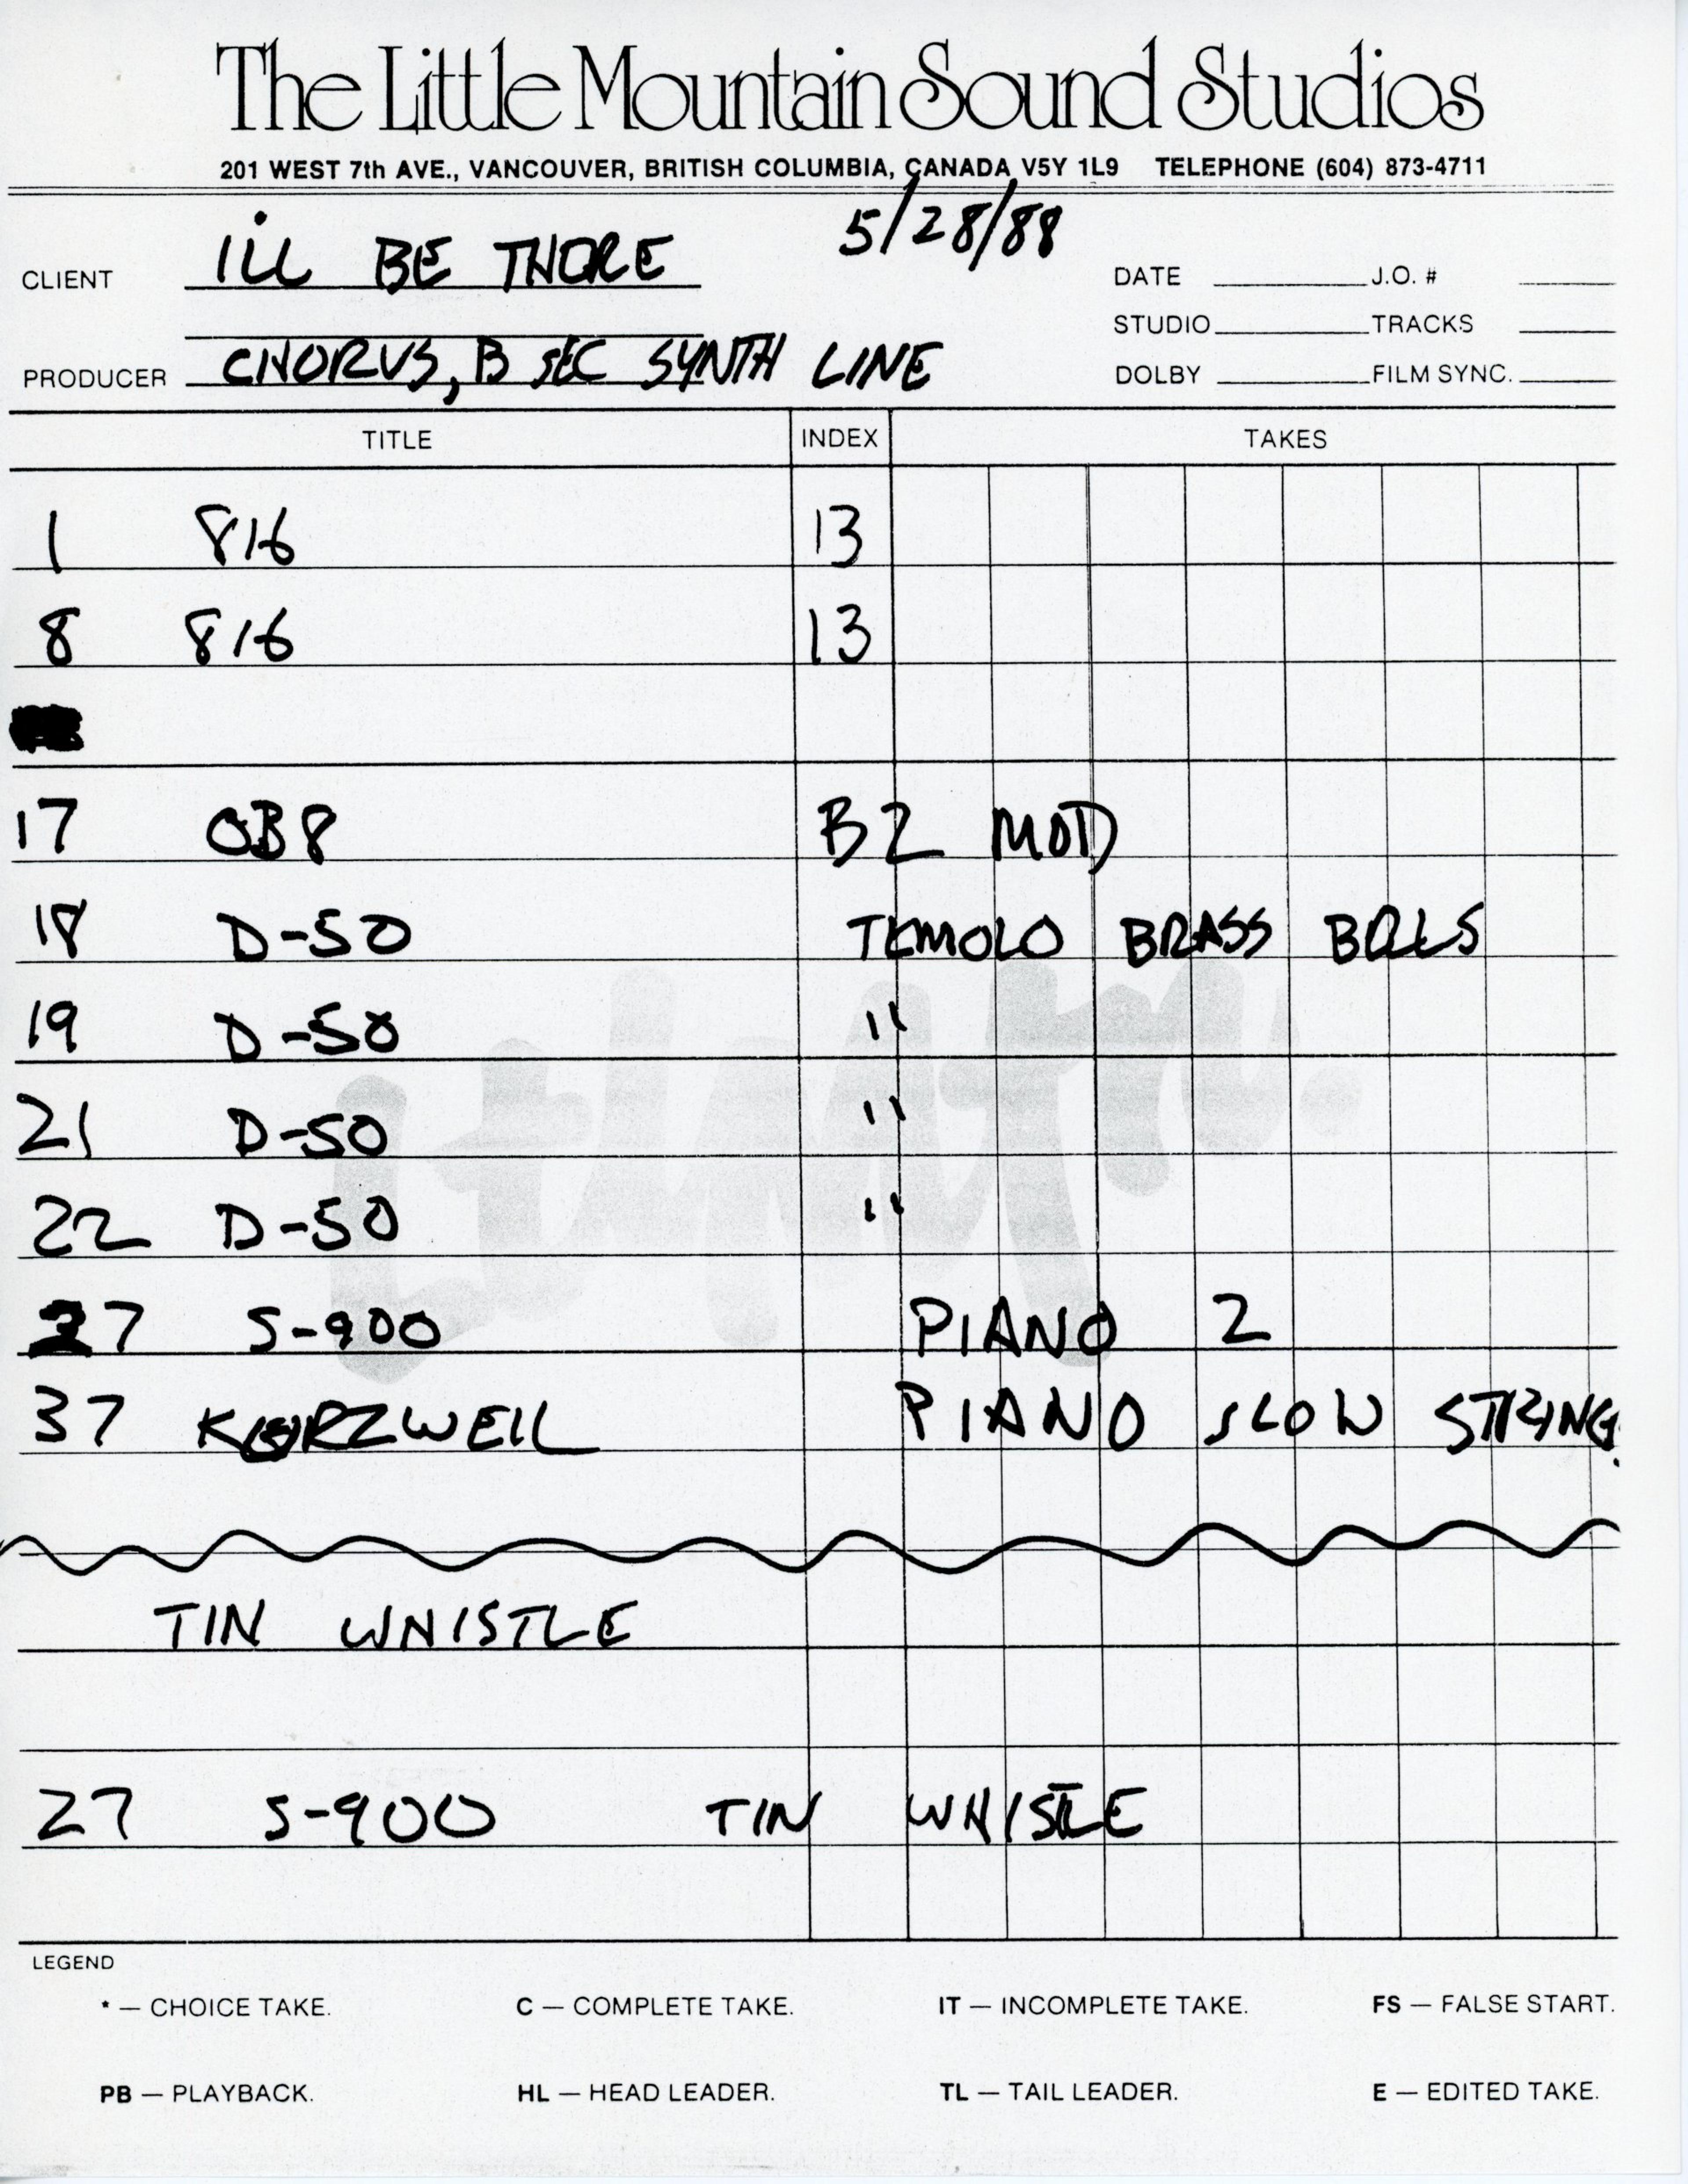 The Little Mountain Sound Studios
201 WEST 7th AVE., VANCOUVER, BRITISH COLUMBIA, CANADA V5Y 1L9 TELEPHONE (604) 873-4711
5/28/88
CLIENT I'LL BE THERE
DATE J.O. #
STUDIO TRACKS
PRODUCER CHORUS, B SEC SYNTH LINE
DOLBY FILM SYNC.
TITLE INDEX TAKES
1 816 13
8 816 13
17 OB8 B2 MOD
18 D-50 BRASS BELLS
19 D-50 "
21 D-50 "
22 D-50 "
27 S-900 PIANO 2
37 KURZWEIL PIANO SLOW STRING.
TIN WHISTLE
27 S-900 TIN WHISTLE
LEGEND
* — CHOICE TAKE. C — COMPLETE TAKE. IT — INCOMPLETE TAKE. FS — FALSE START.
PB — PLAYBACK. HL — HEAD LEADER. TL — TAIL LEADER. E — EDITED TAKE.